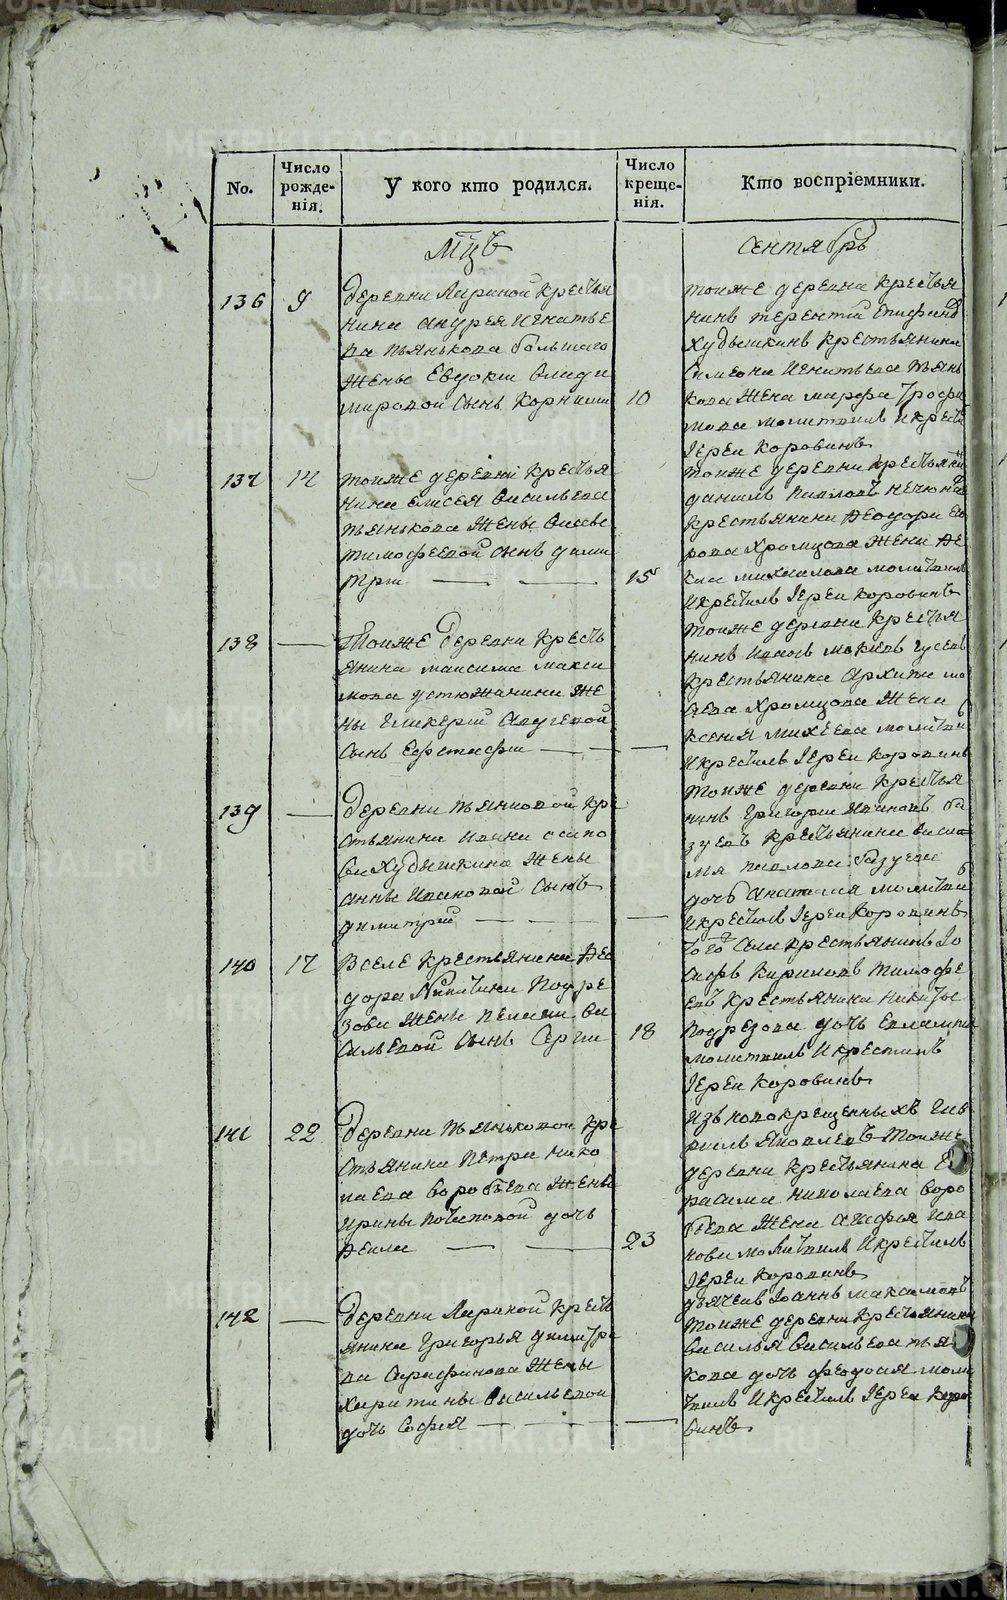 No.
Число рожде-нія.
У кого кто родился.
Число креще-нія.
Кто воспріемники.
Мцъ
Сентябрь
136
9
деревни Лариной крестья
нина андрея игнатье
ва пьянкова большаго
жены Евдокии влади
мировой сынъ Корнили
10
тоиже деревни крестья
нинъ терентий
худышкинъ крестьянина
Симеона игнатьева пьян
кова жена марфа трофи
мова молитвилъ и крест
Іереи коровинъ
137
14
тоиже деревни крестья
нина елисея васильева
пьянькова жены
тимофеевой сынъ дими
трии
15
тоиже деревни крестьяни
даниилъ павловъ
крестьянина Феодора
рова хромцова жена Фе
кла михаилова молитвилъ
и крестилъ Іереи коровинъ
138
Тоиже деревни кресть
янина максима макси
мова устюжанина же
ны гликерии авдеевой
сынъ Евстафии
тоиже деревни крестья
нинъ иванъ гусевъ
крестьянина архипа мо
хромцова жена
ксения михеева молитви
и крестилъ Іереи коровинъ
139
деревни пьянковой кре
стьянина ивана осипо
ва худышкина жены
анны ивановой сынъ
димитрий
тоиже деревни крестья
нинъ григории ивановъ ба
зуевъ крестьянина васи
лия павлова базуева
дочь анаталия молитви
и крестилъ Іереи коровинъ
140
17
В селе крестьянина Фео
дора Никитина Подре
зова жены пелагии ва
сильевой сынъ Сергии
18
того села крестьянинъ Іо
сифъ кириловъ тимофе
евъ крестьянина никиты
подрезова дочь евлампия
молитвилъ и крестилъ
Іереи коровинъ
141
22
деревни пьяньковой кре
стьянина петра нико
лаева воробьева жены
ирины потаповой дочь
Фекла
23
изъ новокрещенныхъ гав
риилъ яковлевъ тоиже
деревни крестьянина Ге
расима николаева воро
бьева жена агафья ива
нова молитвилъ и крестилъ
Іереи коровинъ
142
деревни Лариной кресть
янина григорья димитрие
ва серафимова жены
харитины васильевой
дочь София
дьячекъ Іоаннъ максимовъ
тоиже деревни крестьянина
василья васильева пьян
кова дочь феодосия моли
твилъ и крестилъ Іереи коро
винъ
METRIKI.GASO-URAL.RU